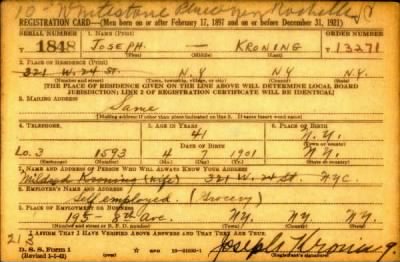 10 Whitestone Place New Rochelle NY
REGISTRATION CARD—(Men born on or after February 17, 1897 and on or before December 31, 1921)
SERIAL NUMBER 1. NAME (Print) ORDER NUMBER
T 1848 JOSEPH — KRONING T 13271
(First) (Middle) (Last)
2. PLACE OF RESIDENCE (Print)
321 W. 24 ST. N.Y. N.Y. N.Y.
(Number and street) (Town, township, village, or city) (County) (State)
[THE PLACE OF RESIDENCE GIVEN ON THE LINE ABOVE WILL DETERMINE LOCAL BOARD
JURISDICTION; LINE 2 OF REGISTRATION CERTIFICATE WILL BE IDENTICAL]
3. MAILING ADDRESS
Same
[Mailing address if other than place indicated on line 2. If same insert word same]
4. TELEPHONE 5. AGE IN YEARS 6. PLACE OF BIRTH
41 N.Y.
DATE OF BIRTH (Town or county)
Lo. 3 1593 4 7 1901 N.Y.
(Exchange) (Number) (Mo.) (Day) (Yr.) (State or country)
7. NAME AND ADDRESS OF PERSON WHO WILL ALWAYS KNOW YOUR ADDRESS
Mildred Kroning (Wife) 321 W. 24 ST. NYC.
8. EMPLOYER'S NAME AND ADDRESS
Self employed. (Grocery)
9. PLACE OF EMPLOYMENT OR BUSINESS
195 - 8th Ave. NY. NY. NY.
(Number and street or R. F. D. number) (Town) (County) (State)
I AFFIRM THAT I HAVE VERIFIED ABOVE ANSWERS AND THAT THEY ARE TRUE.
D. S. S. Form 1
(Revised 1-1-42) (over) Joseph Kroning.
(Registrant's signature)